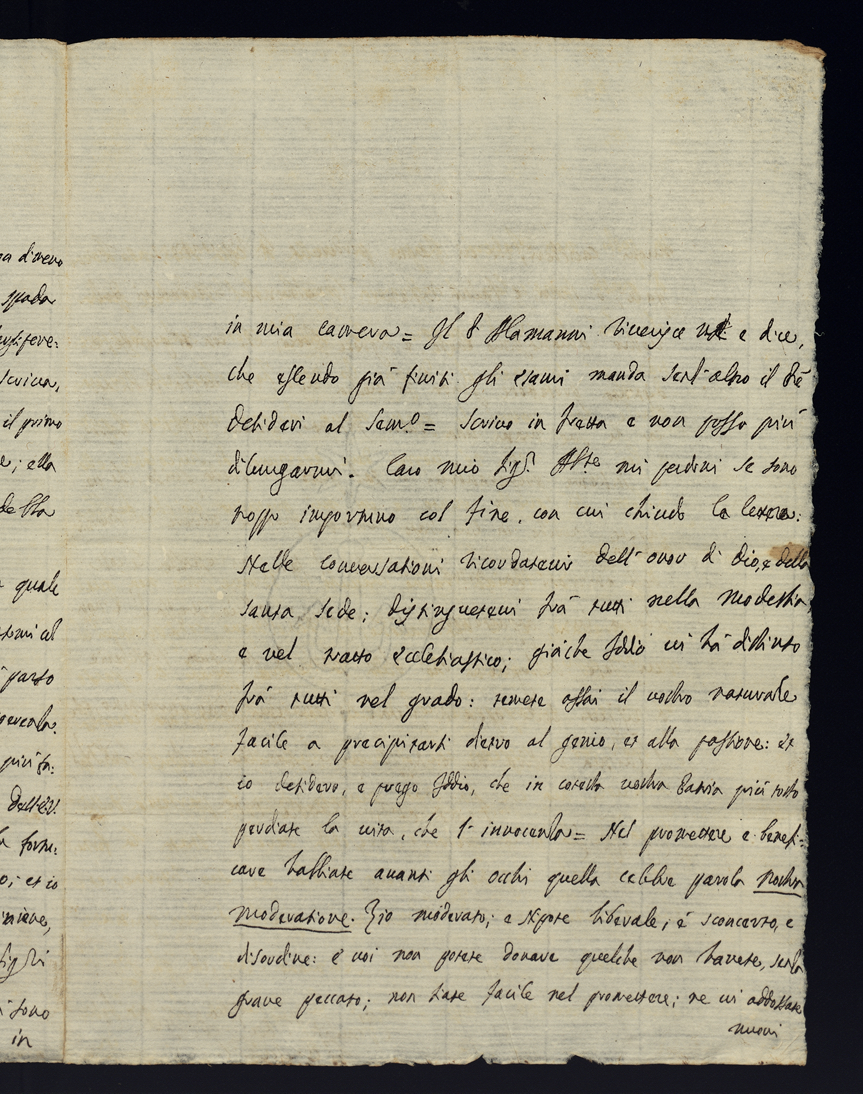 a d'vero
spada
scrivea,
il primo
e; ella
della
quale
parto
più fa:
o; et io
sono
in
in mia camera= Il P. Alamanni riverisce e dice,
che essendo già finiti gli esami manda senz'altro il Dè
desideri al Sem.º = Scrivo in fretta e non posso più
dilungarmi. Caro mio Sig.r Abte mi perdoni se sono
troppo importuno col fine, con cui chiudo la lettera:
Nelle conversationi ricordatevi dell'onor di Dio, e della
Santa Sede; distinguetevi frà tutti nella modestia,
e nel tratto ecclesiastico; giàche Iddio vi hà distinto
frà tutti nel grado: temete assai il vostro naturale
facile a precipitarsi dietro al genio, et alla passione: et
io desidero, e prego Iddio, che in cotesta vostra Patria più tosto
perdiate la vita, che l'innocenza= Nel promettere e benefi=
care habbiate avanti gli occhi quella celebre parola nostra
moderatione. Zio moderato; e Nipote liberale, è sconcerto, e
disordine: e voi non potete donare quelche non havete, senza
grave peccato; non siate facile nel promettere; ne vi addossate
nuovi